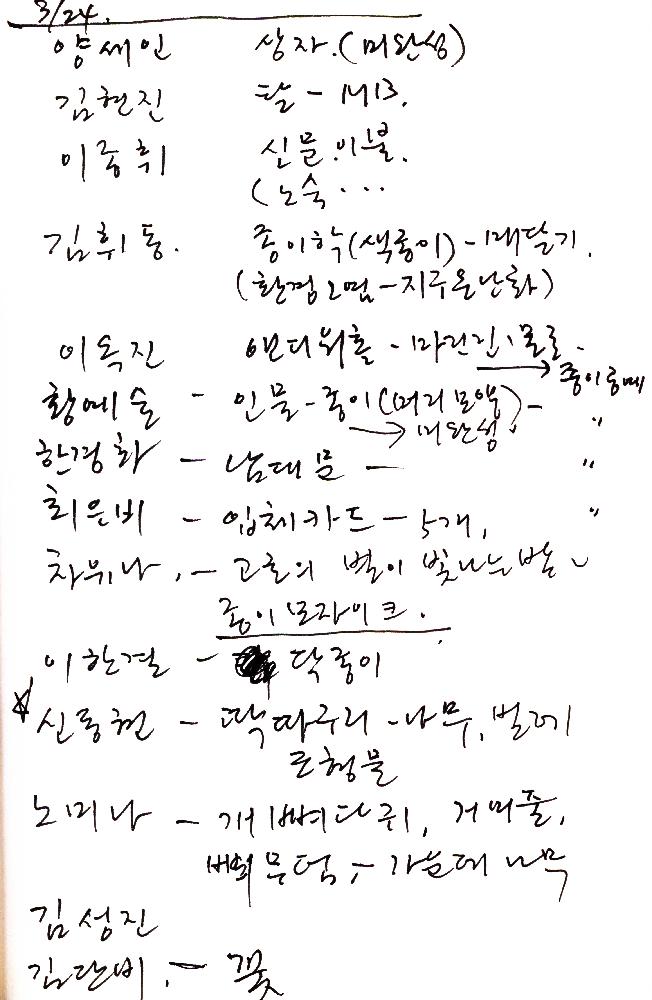 3/24.
양세인 상자.(미완성)
김현진 탈 -
이중휘 신물.이불.
(노숙...
김휘동. 종이학(색종이)-매달기.
(환경오염-지구온난화)
이옥진 앤디워홀 -마릴린.몬로.
→ 종이공예
황예슬 - 인물-종이(머리모양) - "
→ 미완성.
한경화 - 남대문 - "
최은비 - 입체카드 - 5개, "
차유나. - 고흐의 별이 빛나는밤
종이모자이크.
이한결 - 닥종이
☆ 신동현 - 딱따구리 -나무, 벌레
조형물
노미나 - 개뼈다귀, 거미줄,
뼈무덤, - 가운데 나무
김성진
김단비. - 꽃